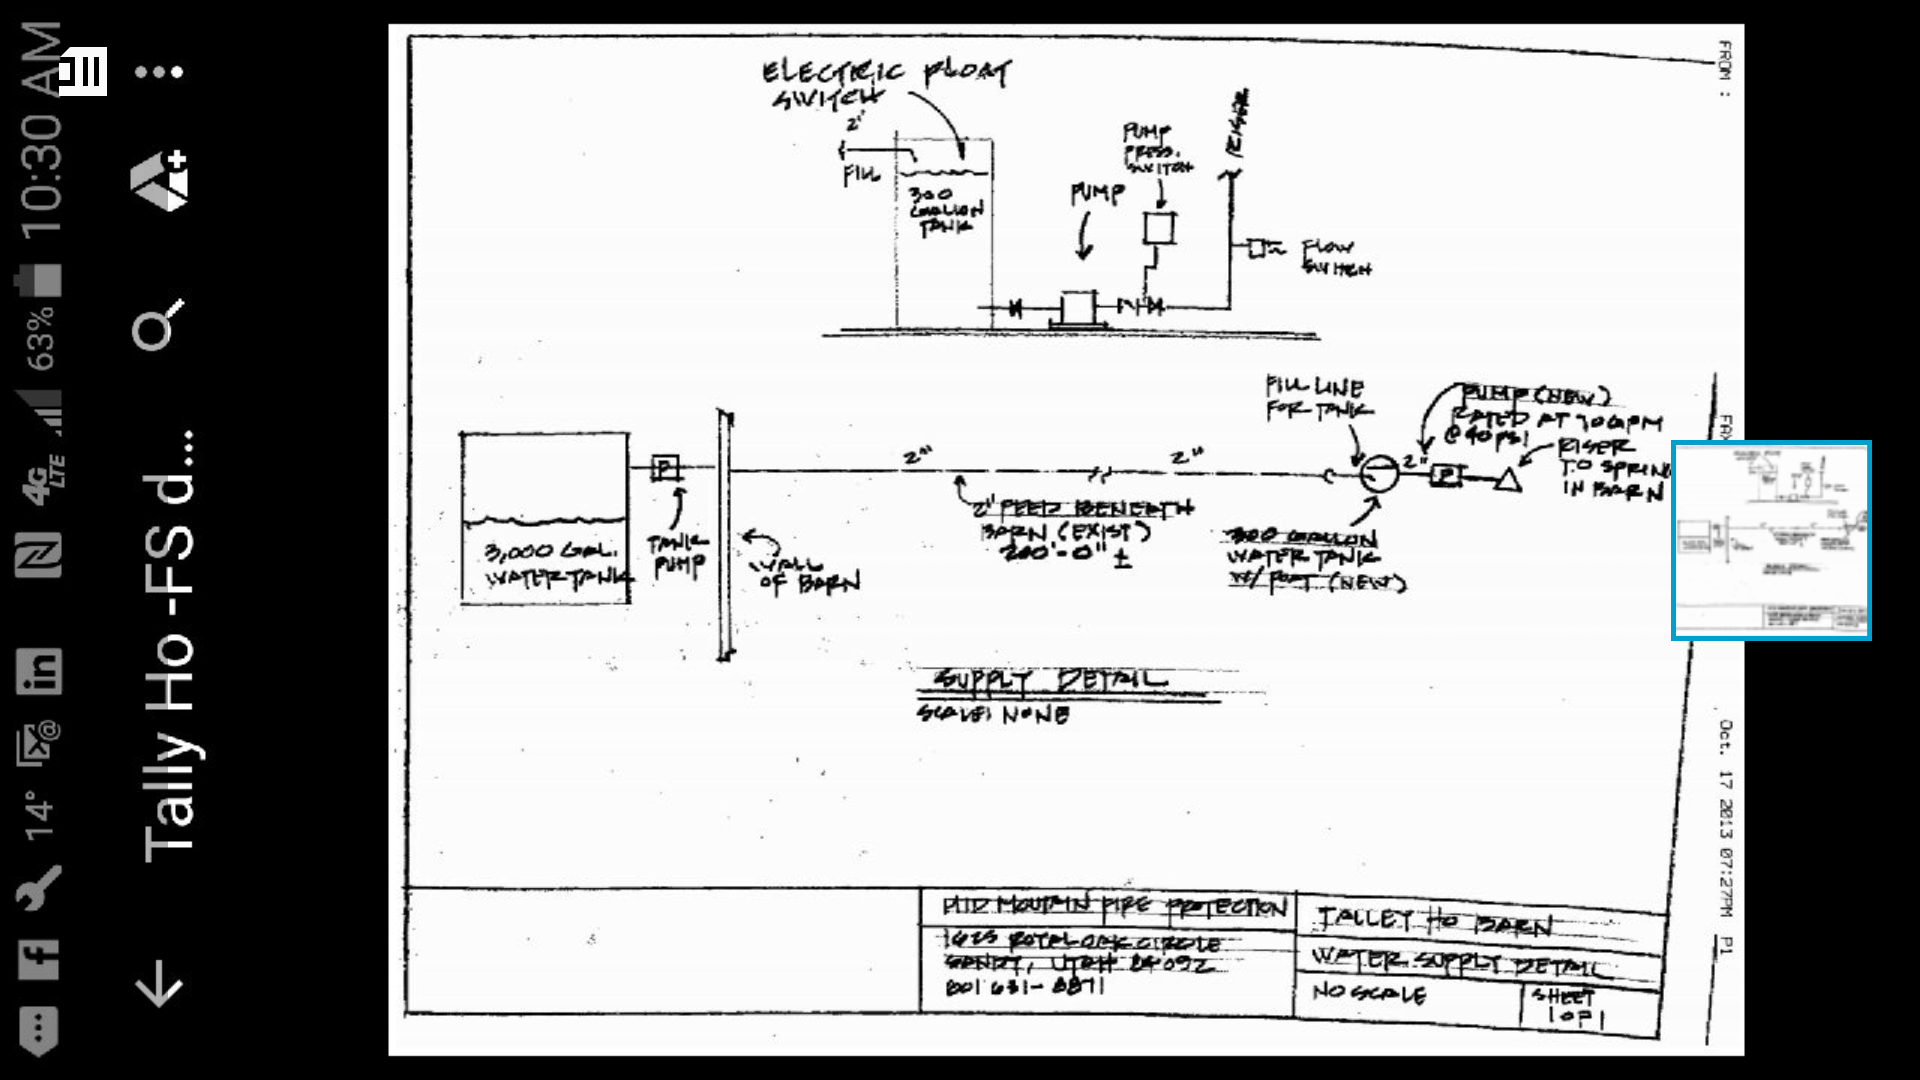 10:30 AM
63%
4G LTE
14°
Tally Ho -FS d...
FROM :
ELECTRIC FLOAT
SWITCH
2"
FILL
300
GALLON
TANK
PUMP
PUMP
PRESS.
SWITCH
RISER
FLOW
SWITCH
FILL LINE
FOR TANK
PUMP (NEW)
RATED AT 70 GPM
@ 40 PSI
RISER
TO SPRIN
IN BARN
P
2"
2"
2"
P
3,000 GAL.
WATER TANK
TANK
PUMP
WALL
OF BARN
2" FEED BENEATH
BARN (EXIST)
200'-0" ±
300 GALLON
WATER TANK
W/ FOAT (NEW)
SUPPLY DETAIL
SCALE: NONE
FAX
Oct. 17 2013 07:27PM P1
MID MOUTAIN FIRE PROTECTION
1625 ROYAL OAK CIRCLE
SANDY, UTAH 84092
801 631-8871
TALLEY HO BARN
WATER SUPPLY DETAIL
NO SCALE
SHEET
1 OF 1